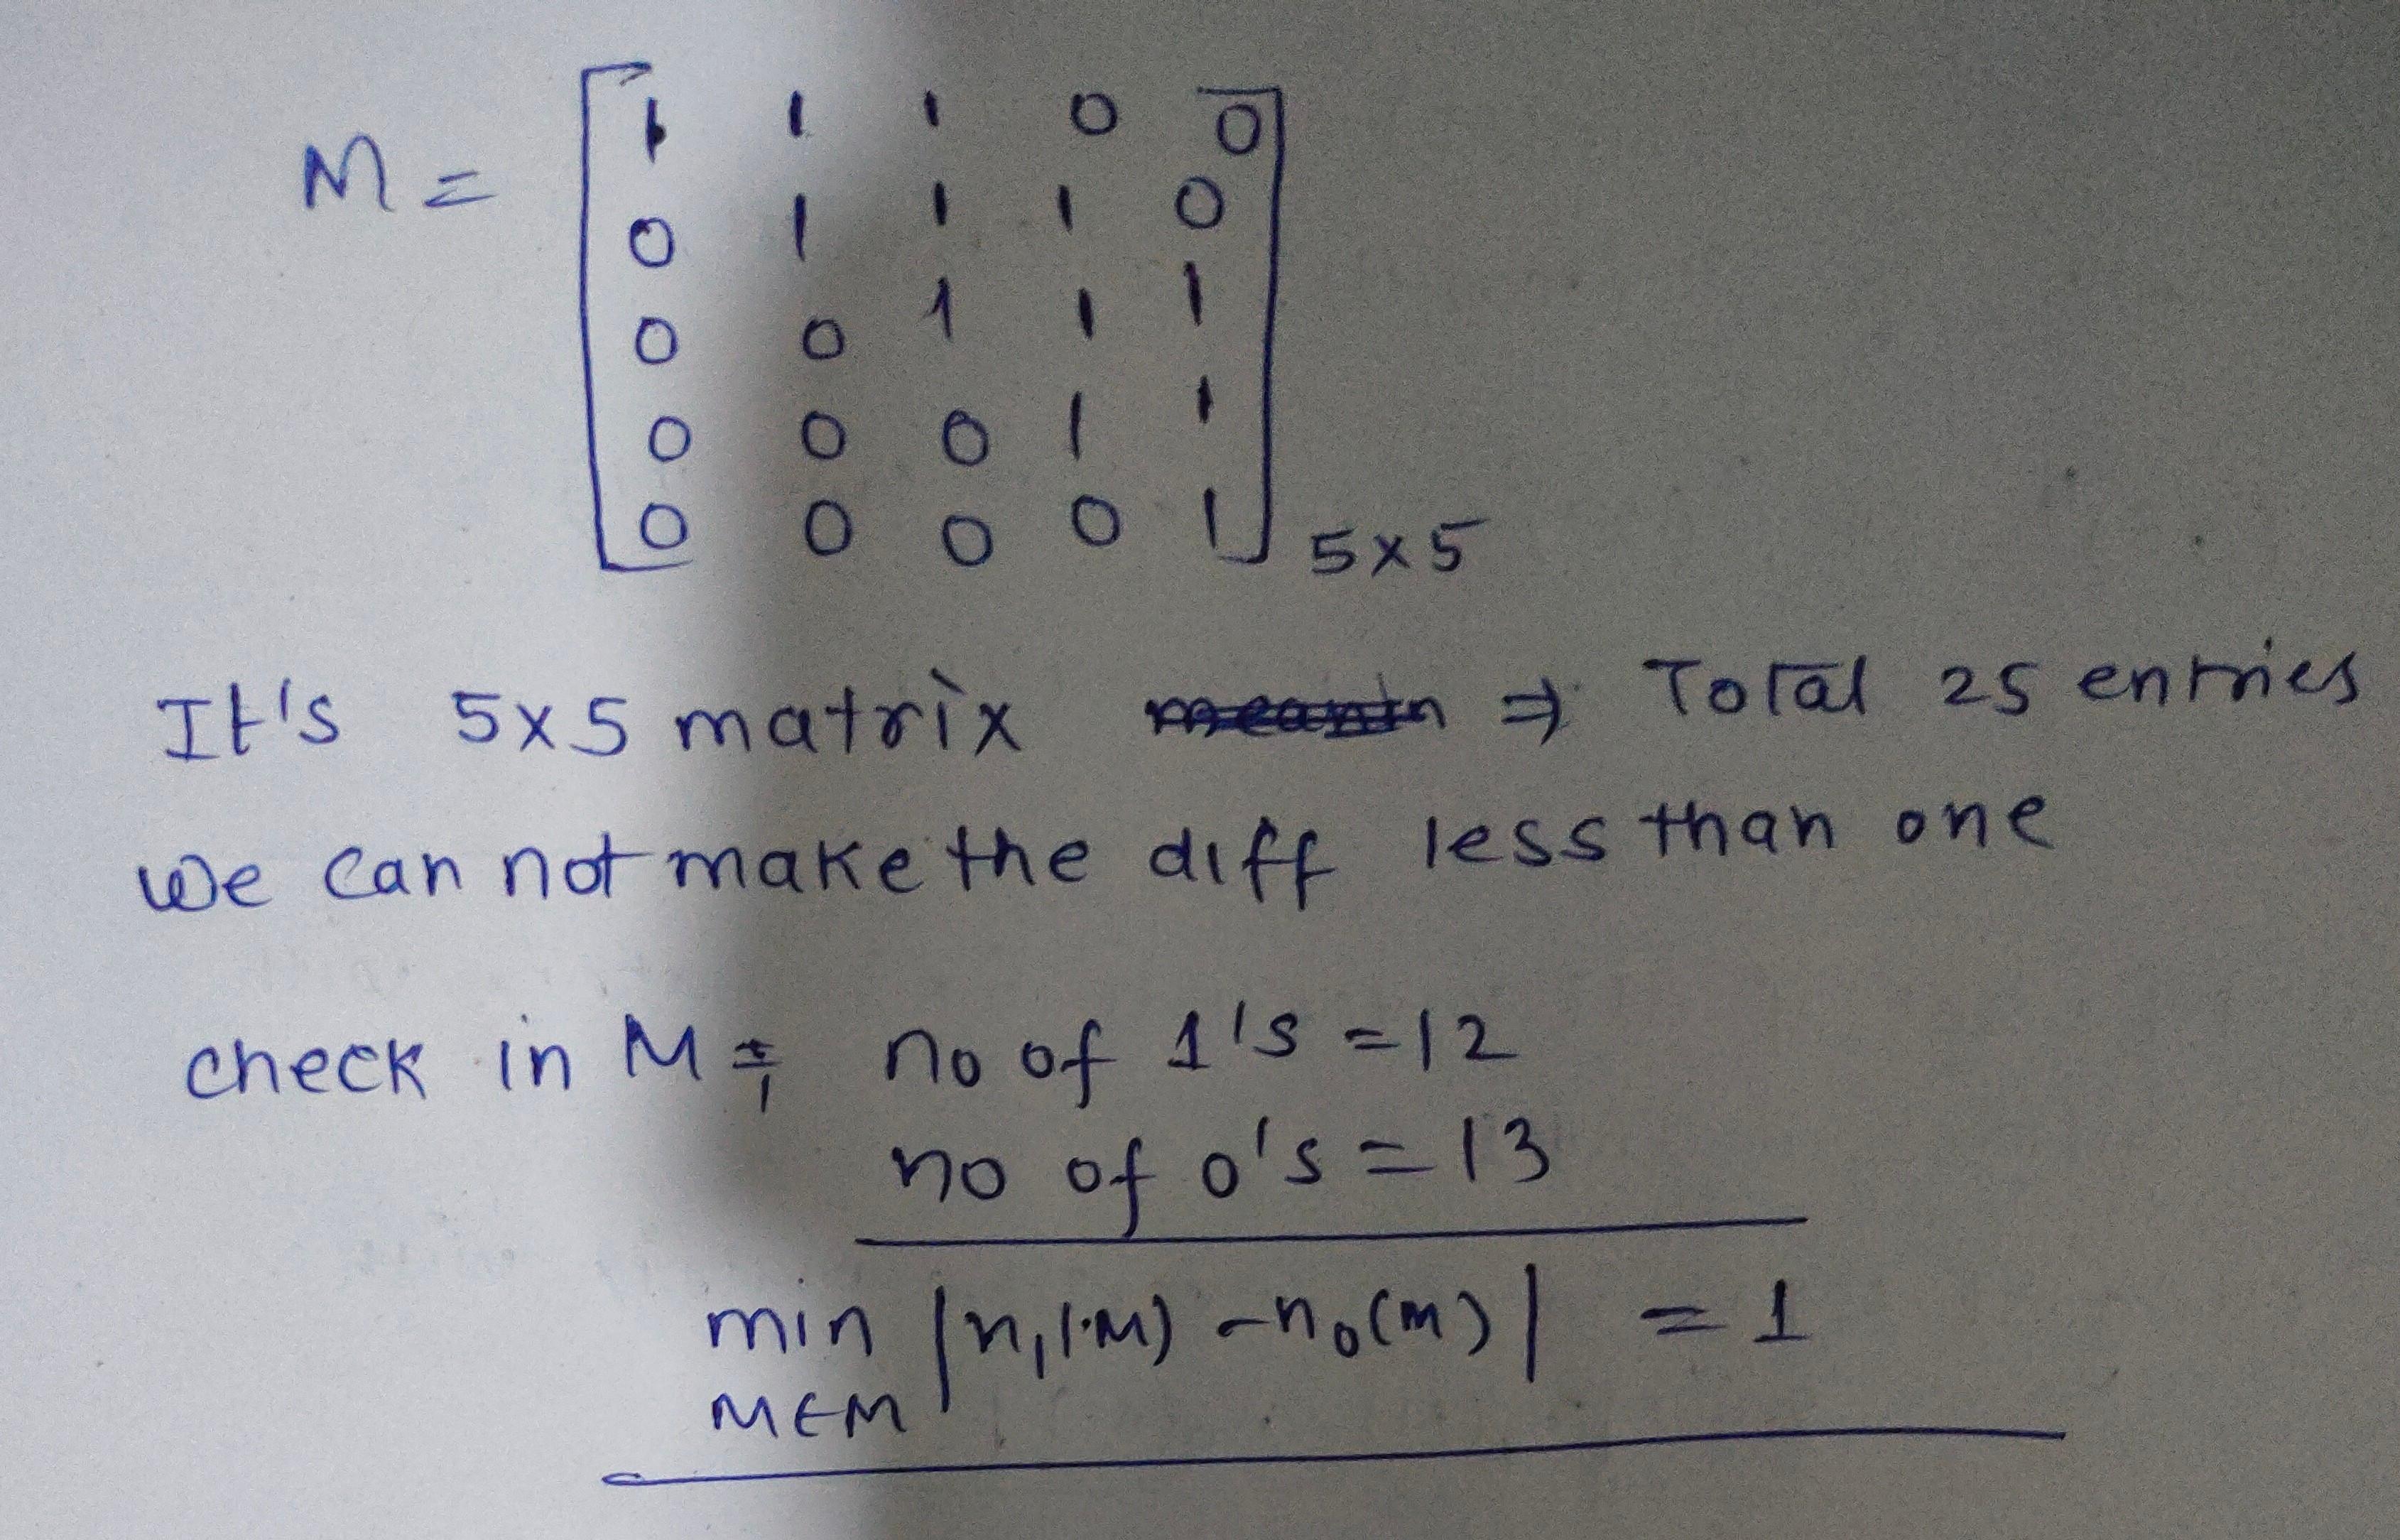 M = [ 1 1 1 0 0
0 1 1 1 0
0 0 1 1 1
0 0 0 1 1
0 0 0 0 1 ] 5x5
It's 5x5 matrix ⇒ Total 25 entries
we can not make the diff less than one
check in M ; no of 1's = 12
no of 0's = 13
min |n₁(M) - n₀(m)| = 1
M∈M